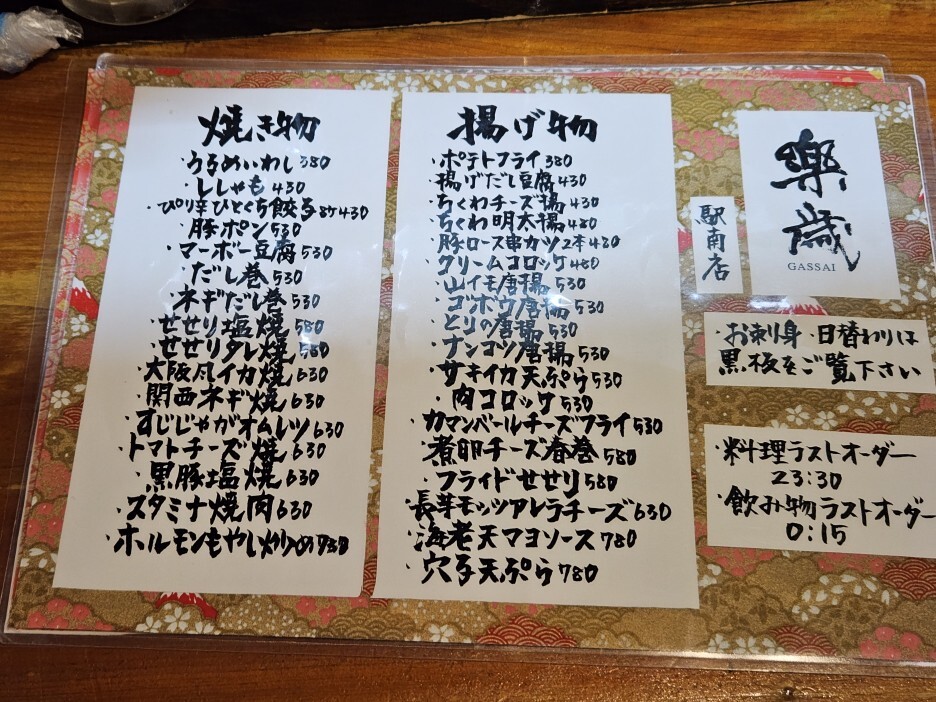 焼き物
・うるめいわし 380
・ししゃも 430
・ぴり辛ひとくち餃子 8ケ 430
・豚ポン 530
・マーボー豆腐 530
・だし巻 530
・ネギだし巻 530
・せせり塩焼 580
・せせりタレ焼 580
・大阪風イカ焼 630
・関西ネギ焼 630
・すじじゃがオムレツ 630
・トマトチーズ焼 630
・黒豚塩焼 630
・スタミナ焼肉 630
・ホルモンもやし炒め 730
揚げ物
・ポテトフライ 380
・揚げだし豆腐 430
・ちくわチーズ揚 430
・ちくわ明太揚 480
・豚ロース串カツ 2本 480
・クリームコロッケ 480
・山イモ唐揚 530
・ゴボウ唐揚 530
・とりの唐揚 530
・ナンコツ唐揚 530
・サキイカ天ぷら 530
・肉コロッケ 530
・カマンベールチーズフライ 530
・煮卵チーズ春巻 580
・フライドせせり 580
・長芋モッツアレラチーズ 630
・海老天マヨソース 780
・穴子天ぷら 780
楽歳
GASSAI
駅南店
・お刺身・日替わりは
黒板をご覧下さい
・料理ラストオーダー
23:30
・飲み物ラストオーダー
0:15